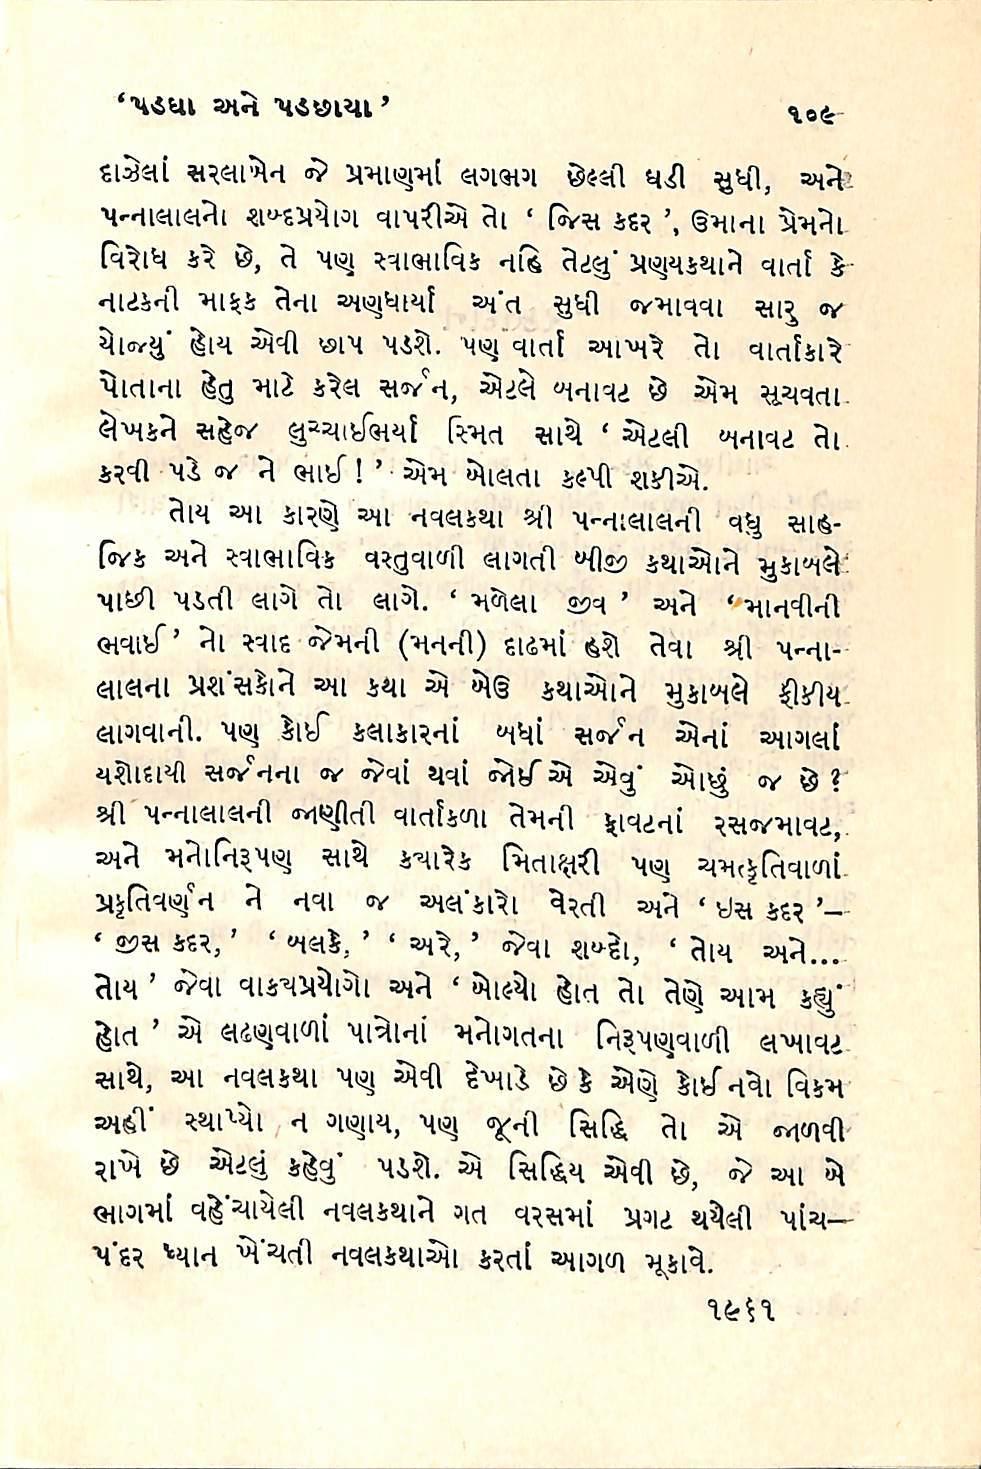 ‘પડઘા અને પડછાયા’ ૧૦૯
દાઝેલાં સરલાબેન જે પ્રમાણમાં લગભગ છેલ્લી ઘડી સુધી, અને
પન્નાલાલનો શબ્દપ્રયોગ વાપરીએ તો ‘ જિસ કદર ’, ઉમાના પ્રેમનો
વિરોધ કરે છે, તે પણ સ્વાભાવિક નહિ તેટલું પ્રણયકથાને વાર્તા કે
નાટકની માફક તેના અણધાર્યા અંત સુધી જમાવવા સારુ જ
યોજ્યું હોય એવી છાપ પડશે. પણ વાર્તા આખરે તો વાર્તાકારે
પોતાના હેતુ માટે કરેલ સર્જન, એટલે બનાવટ છે એમ સૂચવતા
લેખકને સહેજ લુચ્ચાઈભર્યા સ્મિત સાથે ‘ એટલી બનાવટ તો
કરવી પડે જ ને ભાઈ ! ’ એમ બોલતા કલ્પી શકીએ.
તોય આ કારણે આ નવલકથા શ્રી પન્નાલાલની વધુ સાહ-
જિક અને સ્વાભાવિક વસ્તુવાળી લાગતી બીજી કથાઓને મુકાબલે
પાછી પડતી લાગે તો લાગે. ‘ મળેલા જીવ ’ અને ‘માનવીની
ભવાઈ ’ નો સ્વાદ જેમની (મનની) દાઢમાં હશે તેવા શ્રી પન્ના-
લાલના પ્રશંસકોને આ કથા એ બેઉ કથાઓને મુકાબલે ફીકીય
લાગવાની. પણ કોઈ કલાકારનાં બધાં સર્જન એનાં આગલાં
યશોદાયી સર્જનના જ જેવાં થવાં જોઈએ એવું ઓછું જ છે ?
શ્રી પન્નાલાલની જાણીતી વાર્તાકળા તેમની ફાવટનાં રસજમાવટ,
અને મનોનિરૂપણ સાથે ક્યારેક મિતાક્ષરી પણ ચમત્કૃતિવાળાં
પ્રકૃતિવર્ણન ને નવા જ અલંકારો વેરતી અને ‘ ઇસ કદર ’—
‘ જીસ કદર, ’ ‘ બલકે, ’ ‘ અરે, ’ જેવા શબ્દો, ‘ તોય અને...
તોય ’ જેવા વાક્યપ્રયોગો અને ‘ બોલ્યો હોત તો તેણે આમ કહ્યું
હોત ’ એ લઢણવાળાં પાત્રોનાં મનોગતના નિરૂપણવાળી લખાવટ
સાથે, આ નવલકથા પણ એવી દેખાડે છે કે એણે કોઈ નવો વિક્રમ
અહીં સ્થાપ્યો ન ગણાય, પણ જૂની સિદ્ધિ તો એ જાળવી
રાખે છે એટલું કહેવું પડશે. એ સિદ્ધિય એવી છે, જે આ બે
ભાગમાં વહેંચાયેલી નવલકથાને ગત વરસમાં પ્રગટ થયેલી પાંચ—
પંદર ધ્યાન ખેંચતી નવલકથાઓ કરતાં આગળ મૂકાવે.
૧૯૬૧